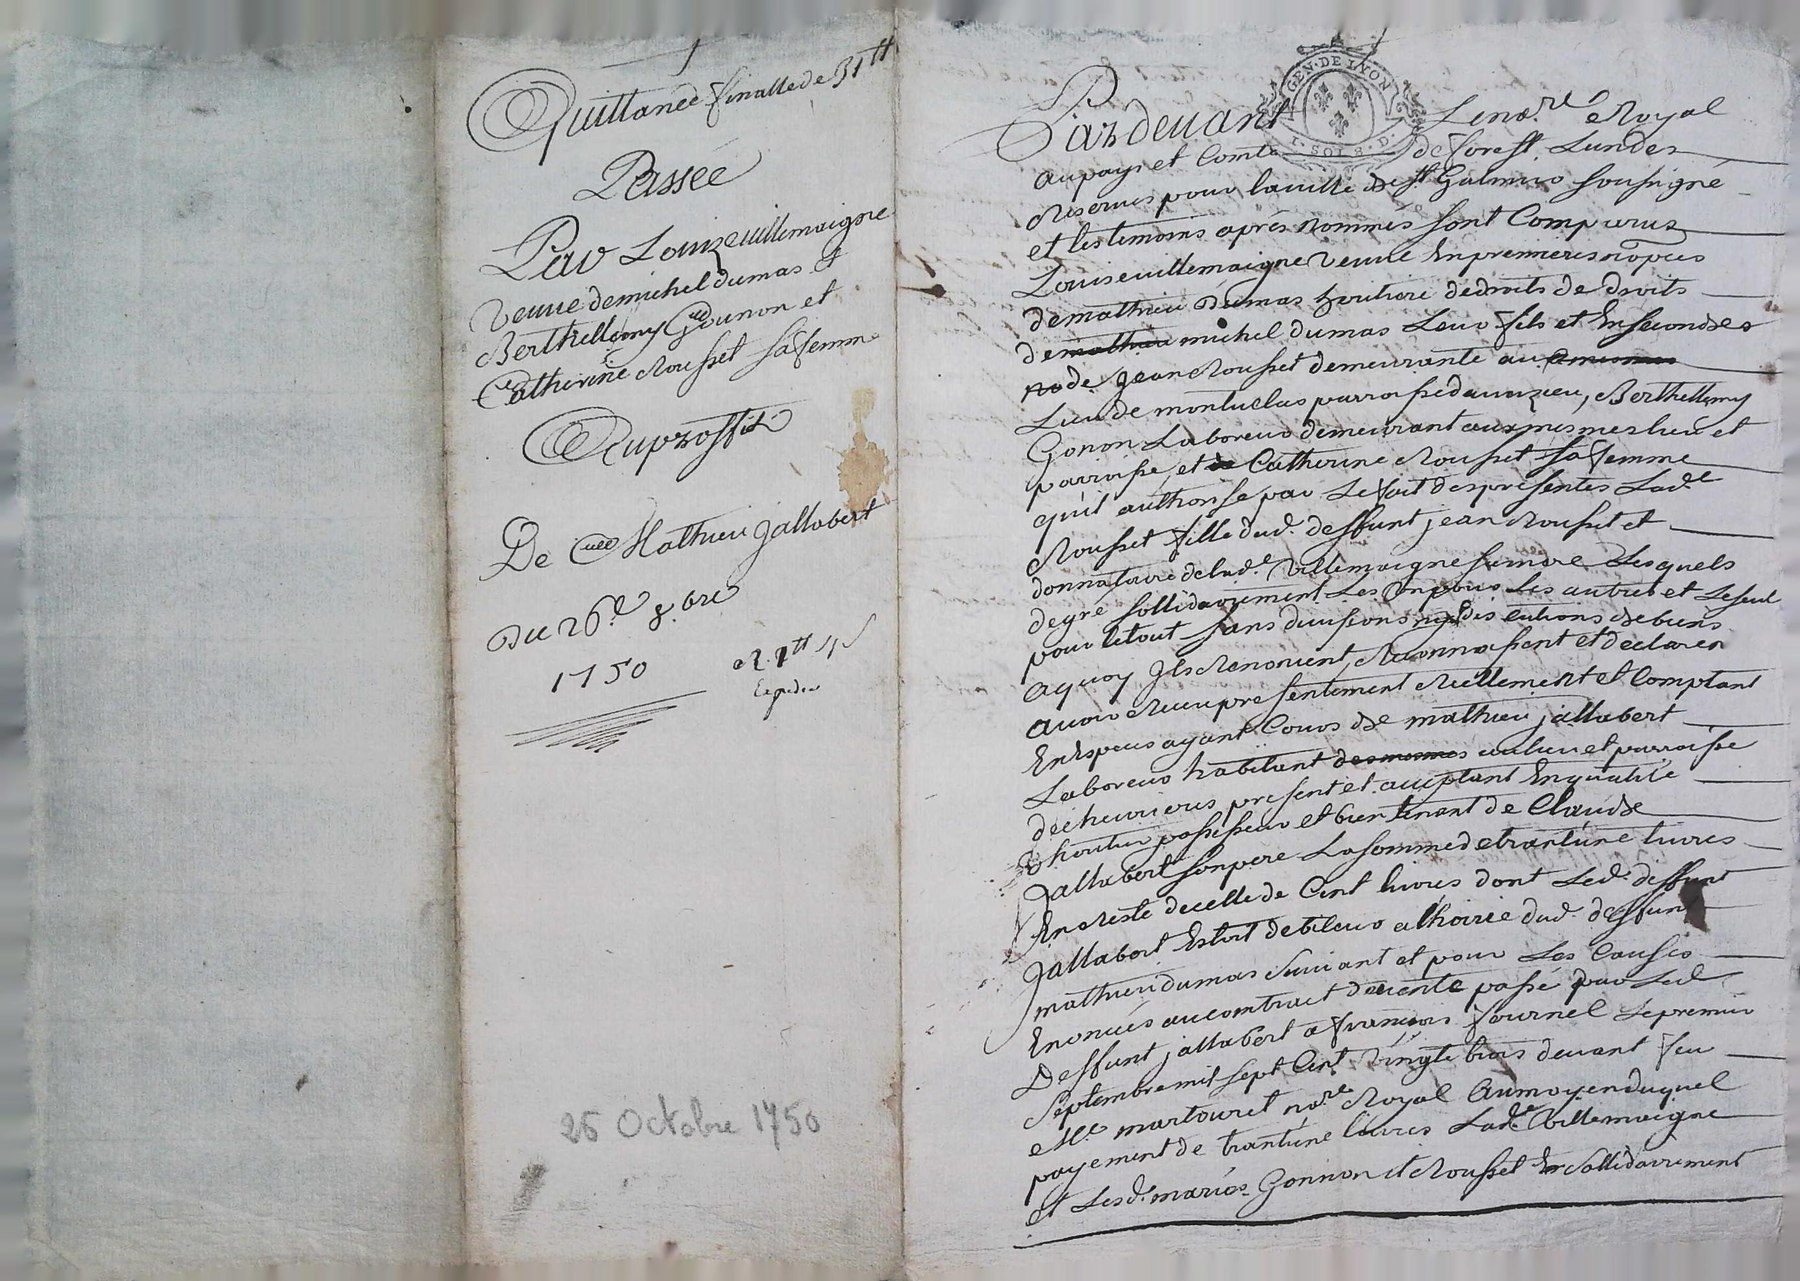 Quittance finalle de 31tt
Passée
Par Louize uillemaigne
veuue de michel dumas et
Berthellemy Gounon et
Catherine Rousset sa femme
Au proffit
De Mathieu Jallabert
Du 26e 8.bre
1750
26 Octobre 1750
GEN · DE LYON
I · SOL 8 · D ·
Pardeuant Le nore Royal
au pays et Comté de forest Lun des
Reserués pour la uille de St Galmier soussigné
et les temoins aprés nommés sont Comparus
Louise uillemaigne veuue En premieres nopces
de mathieu dumas heritiere de droits de droits
de mathieu michel dumas Leur fils et En secondes
no de Jean Rousset demeurante au
Lieu de montuclas parroisse dauaizieu, Berthellemy
Gonon Laboreur demeurant aux mesmes lieu et
parroisse, et de Catherine Rousset sa femme
quil authorise par Le fait des presentes Lade
Rousset fille dud. deffunt jean Rousset et
donnataire de lade Villemaigne sa mere Lesquels
de gré sollidairement Les Un pour Les autres et Le seul
pour le tout sans diuisions ny discutions de biens
a quoy Ils Renoncent, Reconnoissent et declarent
auoir Receu presentement Reellement et Comptant
En Especes ayant Cours de mathieu jallabert
Laboreur habitant des mesmes au lieu et parroisse
de cheurieres present et acceptant En qualité
dheritier possesseur et bien tenant de Claude
Jallabert son pere La somme de trante une liures
En Reste de celle de Cent liures dont Led. deffunt
Jallabert Estoit debiteur a lhoirie dud. deffunt
mathieu dumas Suiuant et pour Les Causes
Enoncées au contract de uente passé par Led.
Deffunt jallabert a françois fournel Le premier
Septembre mil sept Cent Vingt trois deuant feu
Me martouret nore Royal Au moyen duquel
payement de trante une liures Lade Villemaigne
et Lesd. mariés Gonnon et Rousset En sollidairement